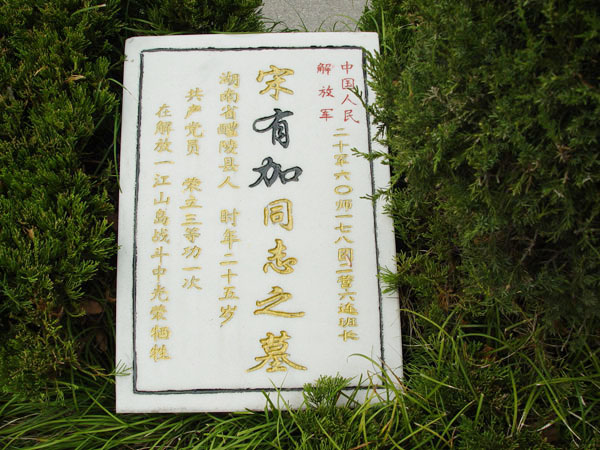 中国人民
解放军
二十军六〇师一七八团二营六连班长
宋有加同志之墓
湖南省醴陵县人 时年二十五岁
共产党员 荣立三等功一次
在解放一江山岛战斗中光荣牺牲